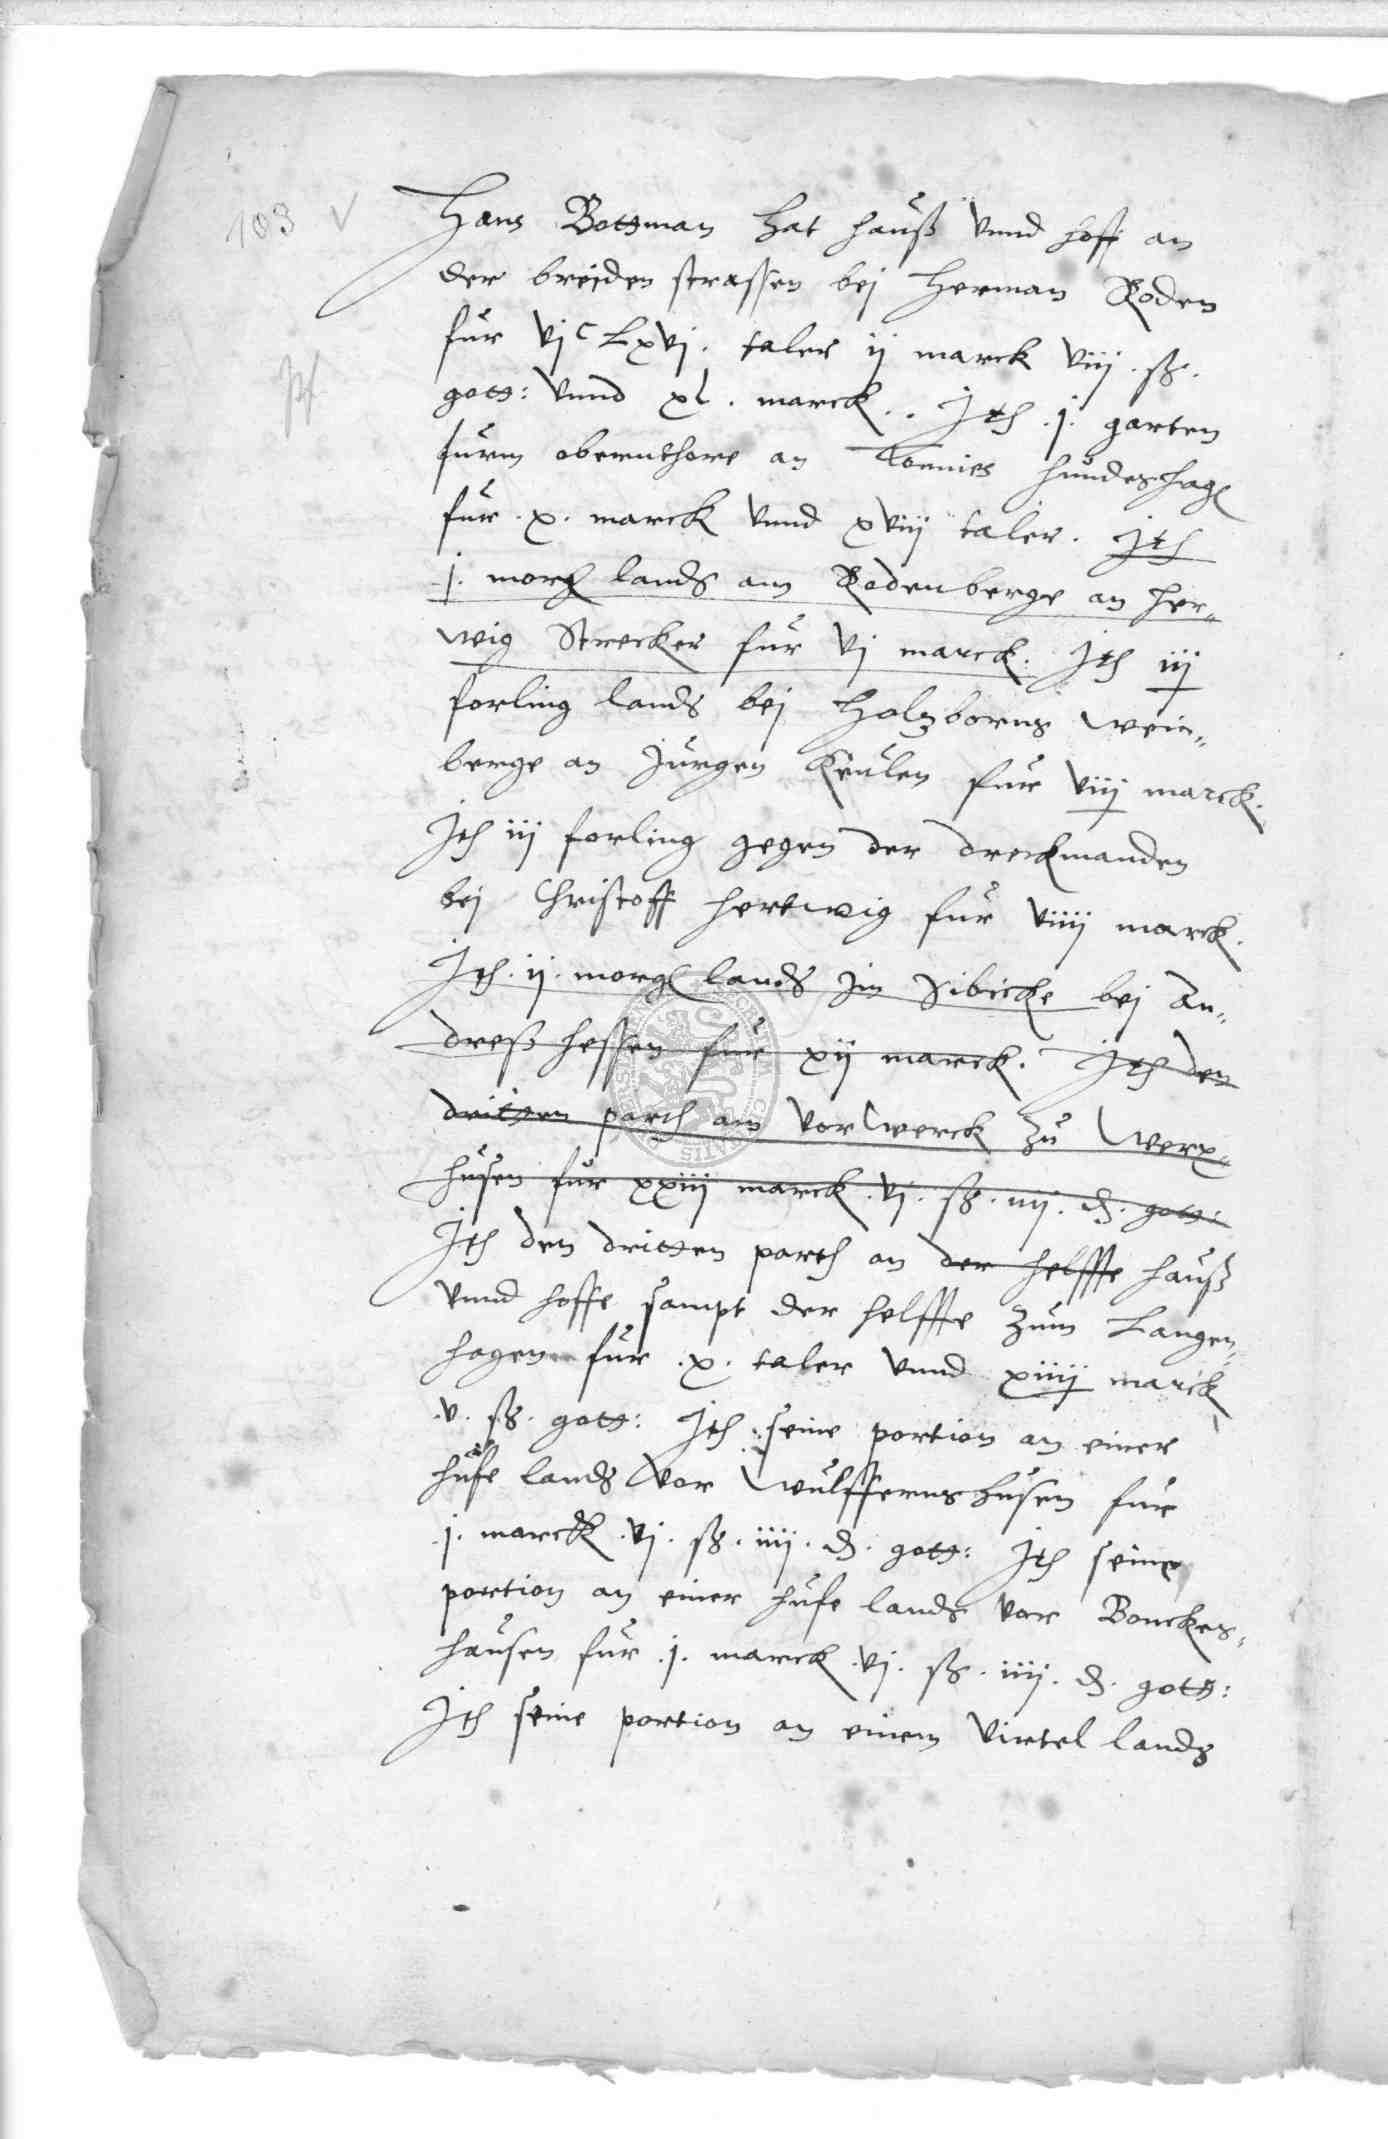 103 v
Hans Bottman hat hauß vnnd hoff an
der breiden strassen bej Herman Roden
fur vjc Lxvj. taler ij marck viij. ß.
gott: vnnd xl. marck.. Jth .j. garten
furm obernthore an Tonnies hundeshag
fur .x. marck vnnd xviij taler. Jth
.j. morg lands am Rodenberge an her„
wig Strecker fur vj marck. Jth iij
forling lands bej Holzborns wein„
berge an Jurgen Keulen fur viij marck.
Jth iij forling gegen der dreckmanden
bej Christoff hertwig fur viiij marck.
Jth .ij. morg lands im Sibicke bej An„
dreß hessen fur xij marck. Jth den
dritten parth am vorwerck zu Werx„
husen fur xxiiij marck .vj. ß. iiij. d. gott:
Jth den dritten parth an der helffte hauß
vnnd hoffe sampt der helffte zum Langen„
hagen fur .x. taler vnnd xiiij marck
.v. ß. gott: Jth seine portion an einer
hufe lands vor Wulffernshusen fur
.j. marck .vj. ß. iiij. d. gott: Jth seine
portion an einer hufe lands vor Bonckes„
hausen fur .j. marck .vj. ß. iiij. d. gott:
Jth seine portion an einem virtel lands